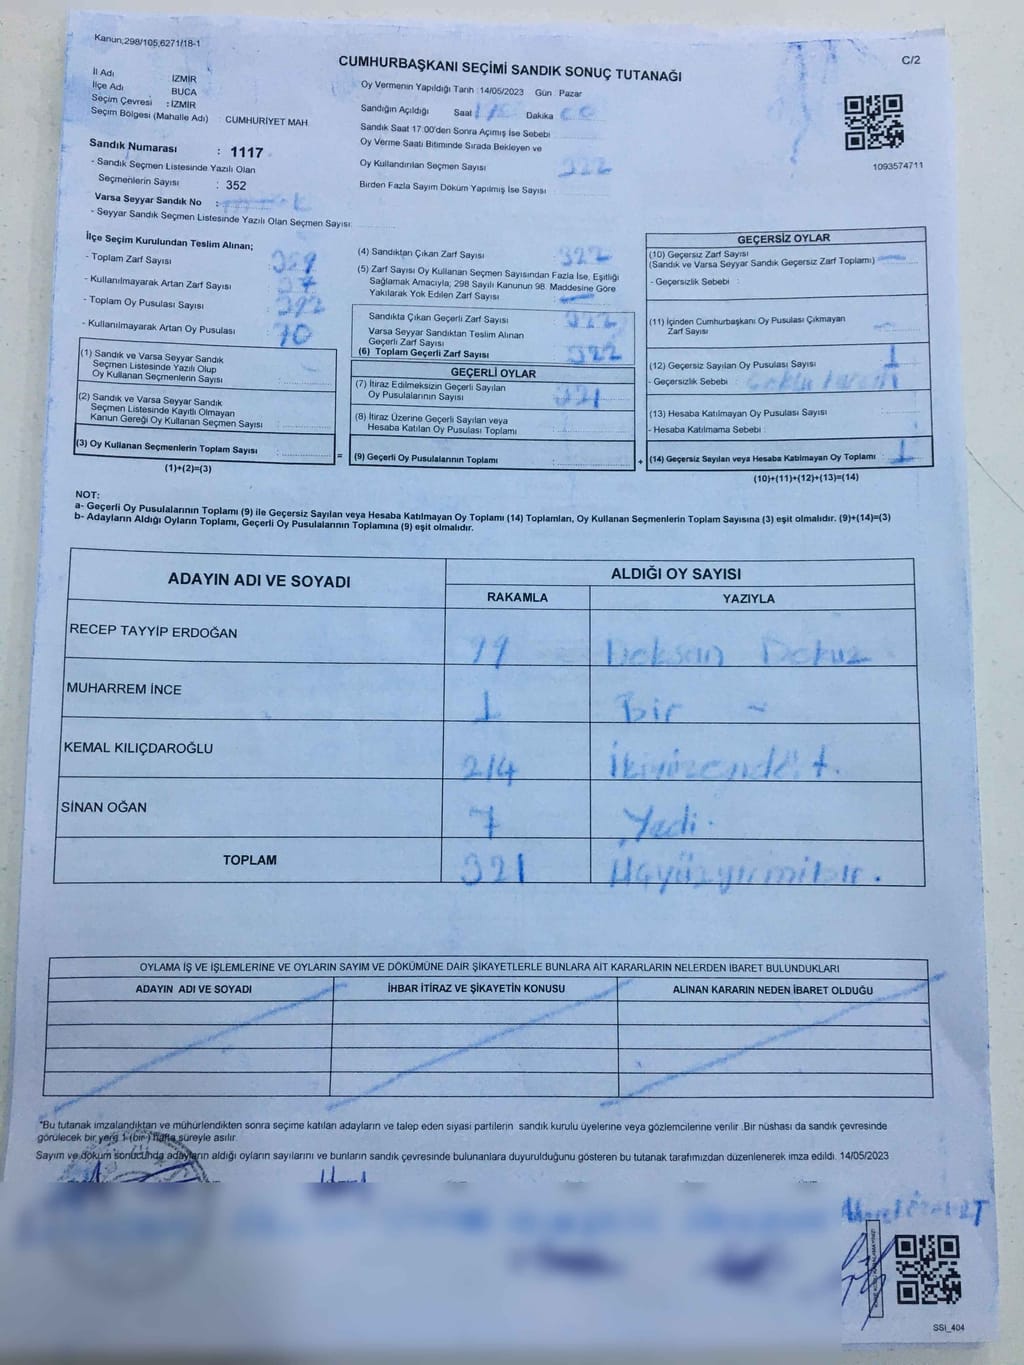 Kanun;298/105,6271/18-1
C/2
CUMHURBAŞKANI SEÇİMİ SANDIK SONUÇ TUTANAĞI
İl Adı İZMİR
İlçe Adı BUCA
Seçim Çevresi : İZMİR
Seçim Bölgesi (Mahalle Adı) CUMHURİYET MAH.
Oy Vermenin Yapıldığı Tarih :14/05/2023 Gün : Pazar
Sandığın Açıldığı Saat Dakika
Sandık Saat 17.00'den Sonra Açımış İse Sebebi
Oy Verme Saati Bitiminde Sırada Bekleyen ve
Oy Kullandırılan Seçmen Sayısı 322
Birden Fazla Sayım Döküm Yapılmış İse Sayısı
1093574711
Sandık Numarası : 1117
- Sandık Seçmen Listesinde Yazılı Olan
Seçmenlerin Sayısı : 352
Varsa Seyyar Sandık No :
- Seyyar Sandık Seçmen Listesinde Yazılı Olan Seçmen Sayısı:
İlçe Seçim Kurulundan Teslim Alınan;
- Toplam Zarf Sayısı :
- Kullanılmayarak Artan Zarf Sayısı :
- Toplam Oy Pusulası Sayısı : 392
- Kullanılmayarak Artan Oy Pusulası : 70
(1) Sandık ve Varsa Seyyar Sandık
Seçmen Listesinde Yazılı Olup
Oy Kullanan Seçmenlerin Sayısı :
(2) Sandık ve Varsa Seyyar Sandık
Seçmen Listesinde Kayıtlı Olmayan
Kanun Gereği Oy Kullanan Seçmen Sayısı :
(3) Oy Kullanan Seçmenlerin Toplam Sayısı :
(1)+(2)=(3)
(4) Sandıktan Çıkan Zarf Sayısı 322
(5) Zarf Sayısı Oy Kullanan Seçmen Sayısından Fazla İse, Eşitliği
Sağlamak Amacıyla; 298 Sayılı Kanunun 98. Maddesine Göre
Yakılarak Yok Edilen Zarf Sayısı
Sandıkta Çıkan Geçerli Zarf Sayısı 322
Varsa Seyyar Sandıktan Teslim Alınan
Geçerli Zarf Sayısı
(6) Toplam Geçerli Zarf Sayısı 322
GEÇERLİ OYLAR
(7) İtiraz Edilmeksizin Geçerli Sayılan
Oy Pusulalarının Sayısı 321
(8) İtiraz Üzerine Geçerli Sayılan veya
Hesaba Katılan Oy Pusulası Toplamı
= (9) Geçerli Oy Pusulalarının Toplamı
GEÇERSİZ OYLAR
(10) Geçersiz Zarf Sayısı
(Sandık ve Varsa Seyyar Sandık Geçersiz Zarf Toplamı)
- Geçersizlik Sebebi :
(11) İçinden Cumhurbaşkanı Oy Pusulası Çıkmayan
Zarf Sayısı
(12) Geçersiz Sayılan Oy Pusulası Sayısı : 1
- Geçersizlik Sebebi :
(13) Hesaba Katılmayan Oy Pusulası Sayısı :
- Hesaba Katılmama Sebebi :
+ (14) Geçersiz Sayılan veya Hesaba Katılmayan Oy Toplamı : 1
(10)+(11)+(12)+(13)=(14)
NOT:
a- Geçerli Oy Pusulalarının Toplamı (9) ile Geçersiz Sayılan veya Hesaba Katılmayan Oy Toplamı (14) Toplamları, Oy Kullanan Seçmenlerin Toplam Sayısına (3) eşit olmalıdır. (9)+(14)=(3)
b- Adayların Aldığı Oyların Toplamı, Geçerli Oy Pusulalarının Toplamına (9) eşit olmalıdır.
ADAYIN ADI VE SOYADI
ALDIĞI OY SAYISI
RAKAMLA YAZIYLA
RECEP TAYYİP ERDOĞAN 99 Doksan Dokuz
MUHARREM İNCE 1 Bir
KEMAL KILIÇDAROĞLU 214 İkiyüzondört.
SİNAN OĞAN 7 Yedi.
TOPLAM 321
OYLAMA İŞ VE İŞLEMLERİNE VE OYLARIN SAYIM VE DÖKÜMÜNE DAİR ŞİKAYETLERLE BUNLARA AİT KARARLARIN NELERDEN İBARET BULUNDUKLARI
ADAYIN ADI VE SOYADI İHBAR İTİRAZ VE ŞİKAYETİN KONUSU ALINAN KARARIN NEDEN İBARET OLDUĞU
*Bu tutanak imzalandıktan ve mühürlendikten sonra seçime katılan adayların ve talep eden siyasi partilerin sandık kurulu üyelerine veya gözlemcilerine verilir .Bir nüshası da sandık çevresinde
görülecek bir yere 1 (bir ) hafta süreyle asılır.
Sayım ve döküm sonucunda adayların aldığı oyların sayılarını ve bunların sandık çevresinde bulunanlara duyurulduğunu gösteren bu tutanak tarafımızdan düzenlenerek imza edildi. 14/05/2023
SSI_404